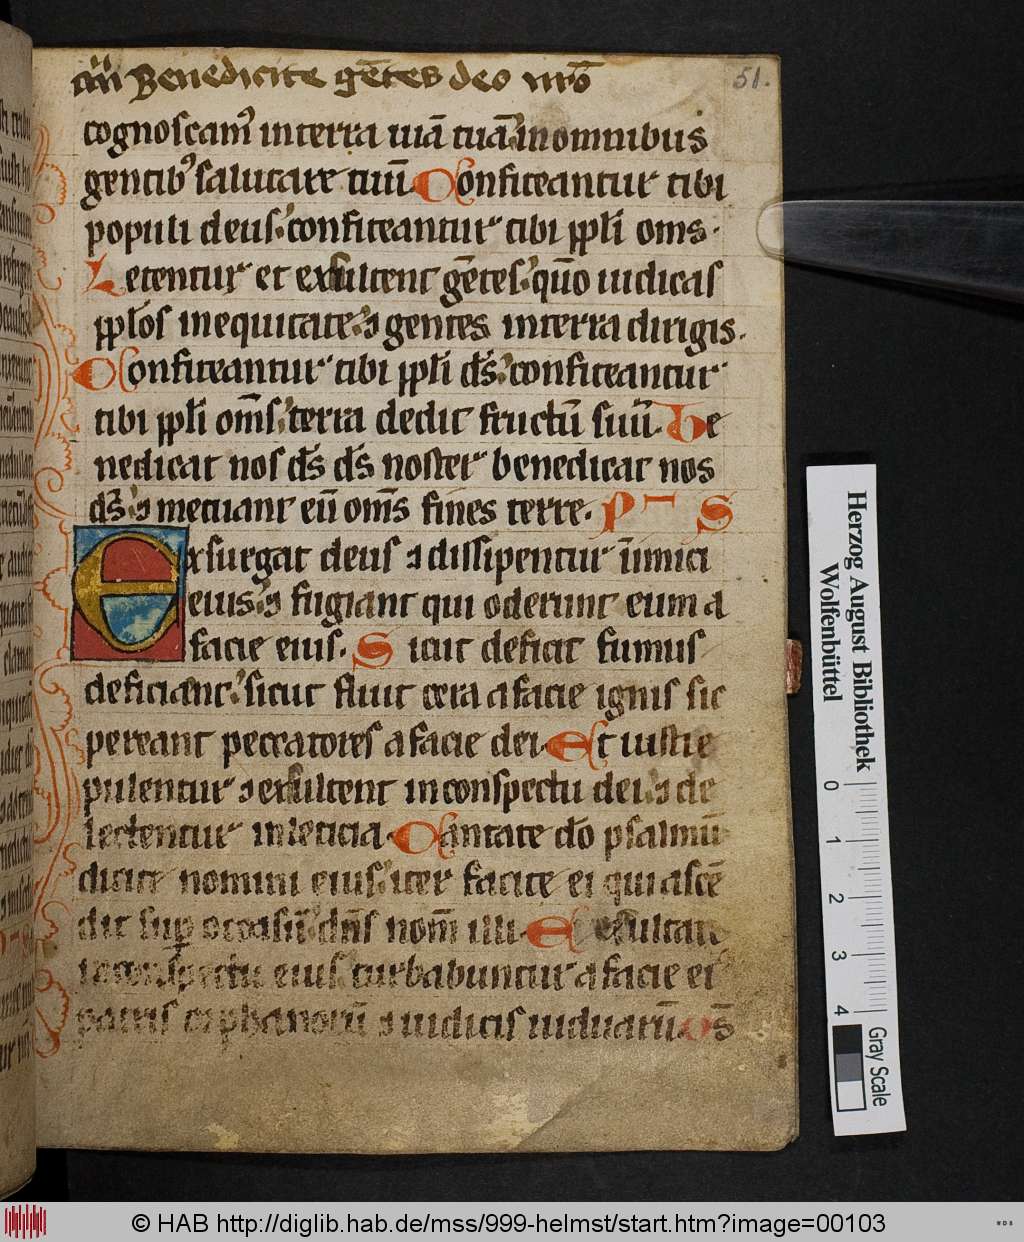 Benedicite gētes deo nrō
51.
cognoscamꝰ in terra uiā tuā in omnibus
gentibꝰ salutare tuū Confiteantur tibi
populi deus confiteantur tibi ppl̄i om̄s.
Letentur et exsultent gētes qm̄o iudicas
ppl̄os in equitate ⁊ gentes in terra dirigis.
Confiteantur tibi ppl̄i ds̄ confiteantur
tibi ppl̄i om̄s terra dedit fructū suū. Be
nedicat nos ds̄ ds̄ noster benedicat nos
ds̄ ⁊ metuant eū om̄s fines terre. P S
Exsurgat deus ⁊ dissipentur īimici
eius ⁊ fugiant qui oderunt eum a
facie eius. Sicut deficit fumus
deficiant sicut fluit cera a facie ignis sic
pereant peccatores a facie dei Et iusti e
pulentur ⁊ exsultent in conspectu dei ⁊ de
lectentur in leticia Cantate dō psalmū
dicite nomini eius iter facite ei qui ascē
dit sup occasū dn̄s nom̄ illi Et exsultate
in conspectu eius turbabuntur a facie eiꝰ
patris orphanorū ⁊ iudicis uiduarū. Ds̄
Herzog August Bibliothek
Wolfenbüttel
0 1 2 3 4
Gray Scale
© HAB http://diglib.hab.de/mss/999-helmst/start.htm?image=00103